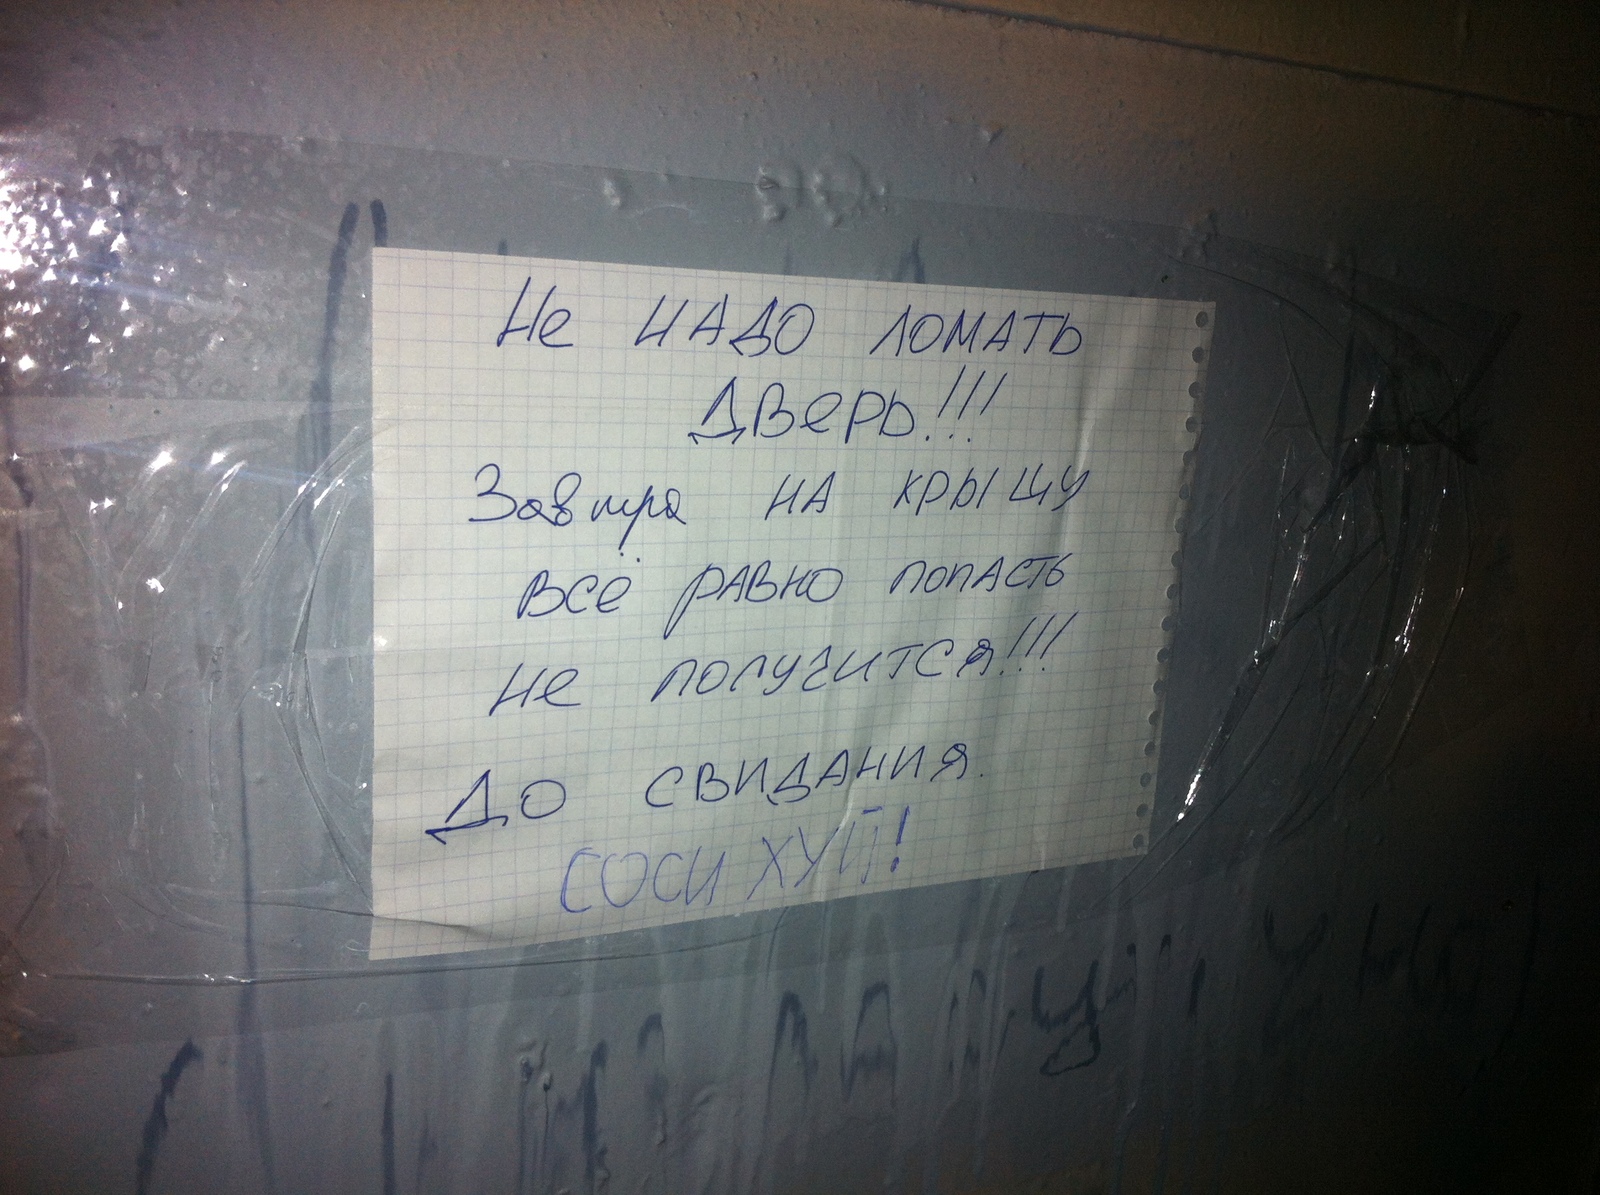 Не НАДО ЛОМАТЬ
ДВерь!!!
Завтра НА КРЫШУ
ВСЁ РАВНО ПОПАСТЬ
Не ПОЛУЧИТСЯ!!!
ДО СВИДАНИЯ.
СОСИ ХУЙ!